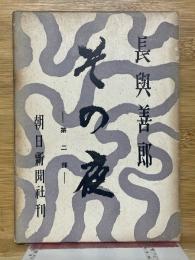 長與善郎
その夜
―第二部―
朝日新聞社刊